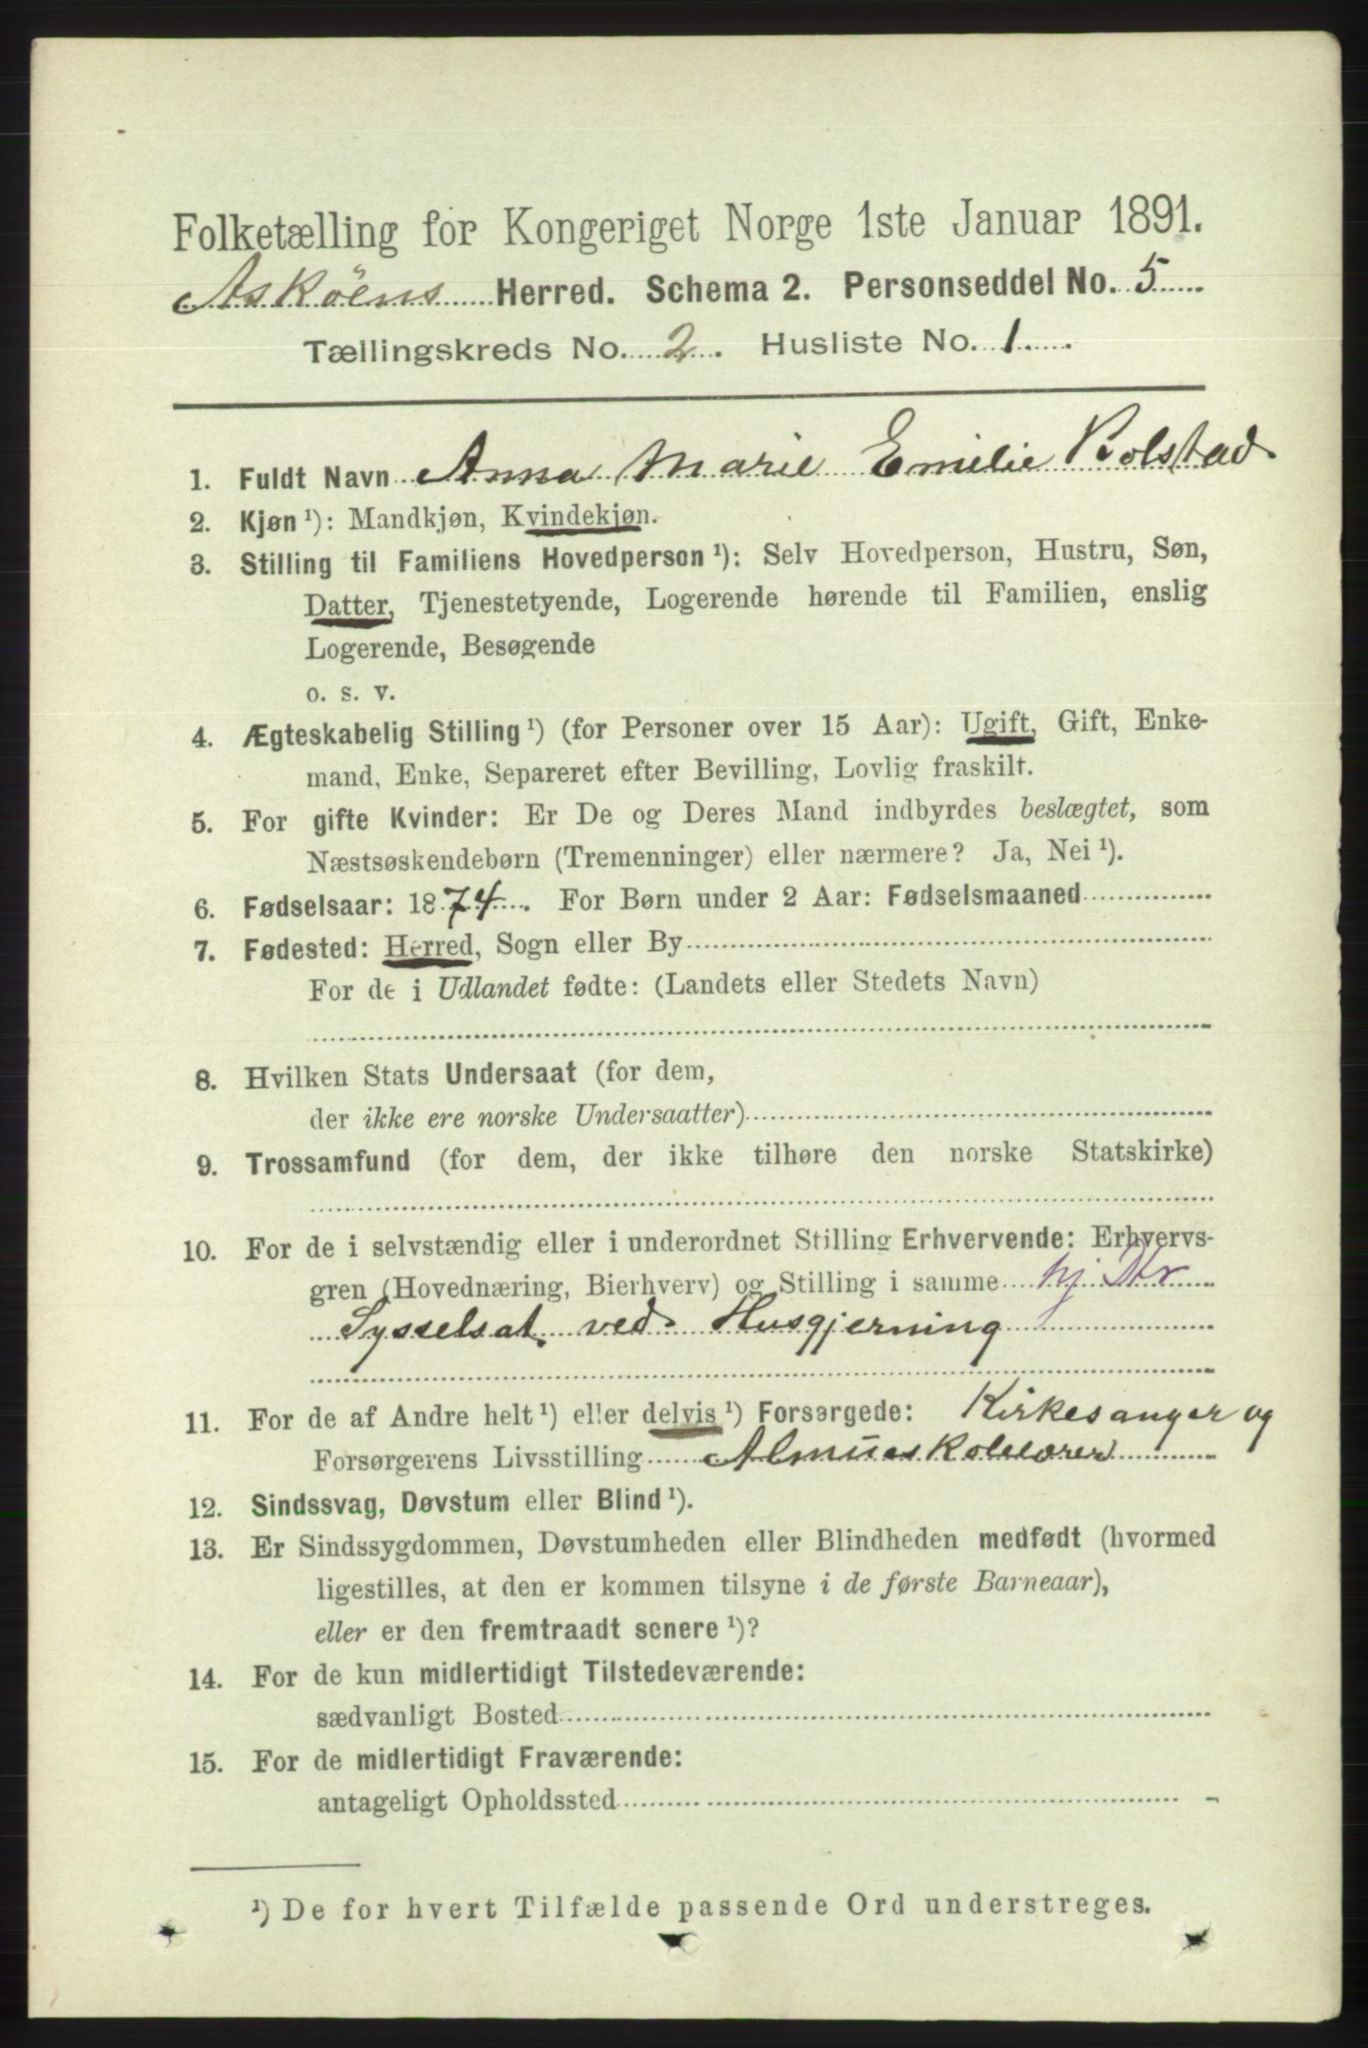 Folketælling for Kongeriget Norge 1ste Januar 1891.
Askøens Herred. Schema 2. Personseddel No. 5
Tællingskreds No. 2. Husliste No. 1
1. Fuldt Navn Anna Marie Emilie Bolstad
2. Kjøn ¹): Mandkjøn, Kvindekjøn.
3. Stilling til Familiens Hovedperson ¹): Selv Hovedperson, Hustru, Søn,
Datter, Tjenestetyende, Logerende hørende til Familien, enslig
Logerende, Besøgende
o. s. v.
4. Ægteskabelig Stilling ¹) (for Personer over 15 Aar): Ugift, Gift, Enke-
mand, Enke, Separeret efter Bevilling, Lovlig fraskilt.
5. For gifte Kvinder: Er De og Deres Mand indbyrdes beslægtet, som
Næstsøskendebørn (Tremenninger) eller nærmere? Ja, Nei ¹).
6. Fødselsaar: 1874. For Børn under 2 Aar: Fødselsmaaned
7. Fødested: Herred, Sogn eller By
For de i Udlandet fødte: (Landets eller Stedets Navn)
8. Hvilken Stats Undersaat (for dem,
der ikke ere norske Undersaatter)
9. Trossamfund (for dem, der ikke tilhøre den norske Statskirke)
10. For de i selvstændig eller i underordnet Stilling Erhvervende: Erhvervs-
gren (Hovednæring, Bierhverv) og Stilling i samme hj.
Sysselsat ved Husgjerning
11. For de af Andre helt ¹) eller delvis ¹) Forsørgede: Kirkesanger og
Forsørgerens Livsstilling Almueskolelærer
12. Sindssvag, Døvstum eller Blind ¹).
13. Er Sindssygdommen, Døvstumheden eller Blindheden medfødt (hvormed
ligestilles, at den er kommen tilsyne i de første Barneaar),
eller er den fremtraadt senere ¹)?
14. For de kun midlertidigt Tilstedeværende:
sædvanligt Bosted
15. For de midlertidigt Fraværende:
antageligt Opholdssted
¹) De for hvert Tilfælde passende Ord understreges.